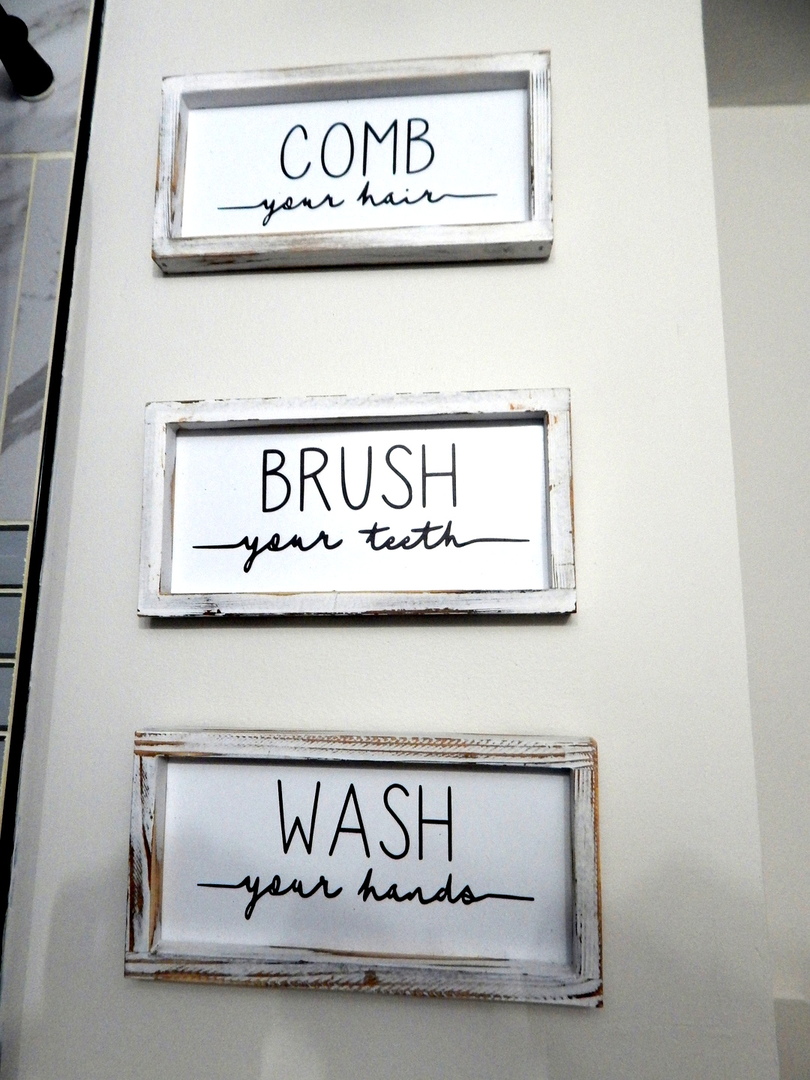 COMB
your hair
BRUSH
your teeth
WASH
your hands